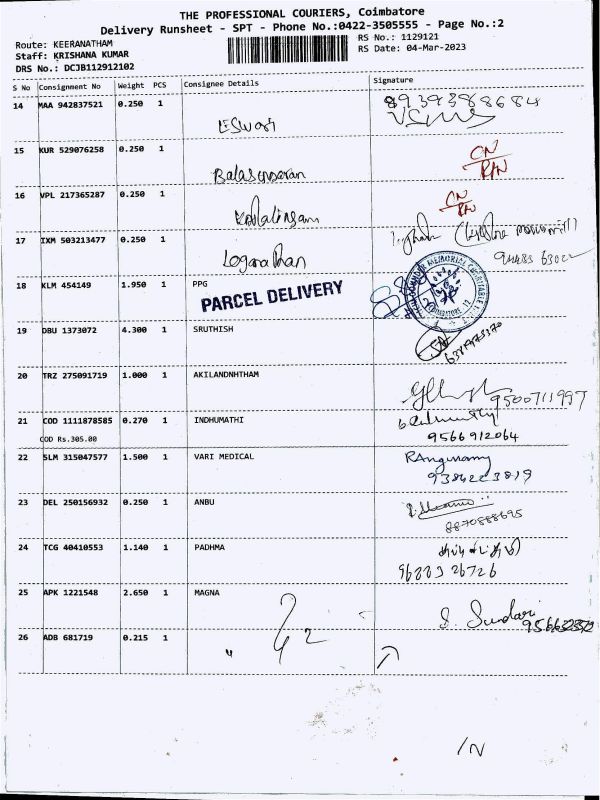 THE PROFESSIONAL COURIERS, Coimbatore
Delivery Runsheet - SPT - Phone No.:0422-3505555 - Page No.:2
Route: KEERANATHAM
RS No.: 1129121
Staff: KRISHANA KUMAR
RS Date: 04-Mar-2023
DRS No.: DCJB112912102
S No Consignment No Weight PCS Consignee Details Signature
14 MAA 942837521 0.250 1 8939388684
Eswari
15 KUR 529076258 0.250 1
Balaswaran
CN
RTN
16 VPL 217365287 0.250 1
CN
RTN
17 IXM 503213477 0.250 1
Loganathan
18 KLM 454149 1.950 1 PPG
PARCEL DELIVERY
19 DBU 1373072 4.300 1 SRUTHISH
20 TRZ 275091719 1.000 1 AKILANDNHTHAM
9500711997
21 COD 1111878585 0.270 1 INDHUMATHI
COD Rs.305.00
9566912064
22 SLM 315047577 1.500 1 VARI MEDICAL
9384223819
23 DEL 250156932 0.250 1 ANBU
8870888695
24 TCG 40410553 1.140 1 PADHMA
25 APK 1221548 2.650 1 MAGNA
S. Sundari
26 ADB 681719 0.215 1 "